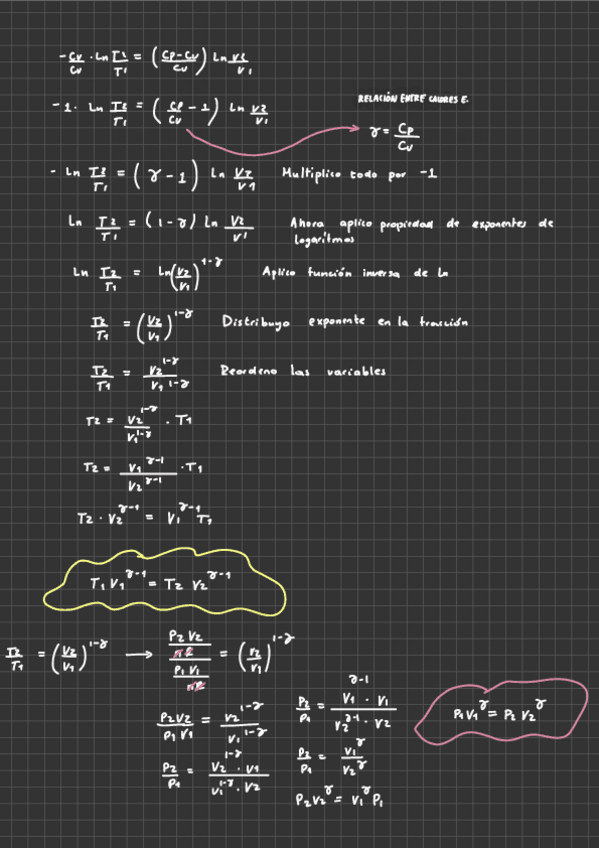 -Cv/Cv · Ln T2/T1 = (Cp-Cv/Cv) Ln V2/V1
-1 · Ln T2/T1 = (Cp/Cv - 1) Ln V2/V1
RELACIÓN ENTRE CALORES E.
γ = Cp/Cv
- Ln T2/T1 = (γ - 1) Ln V2/V1 Multiplico todo por -1
Ln T2/T1 = (1-γ) Ln V2/V1 Ahora aplico propiedad de exponentes de
Logaritmos
Ln T2/T1 = Ln(V2/V1)^1-γ Aplico función inversa de Ln
T2/T1 = (V2/V1)^1-γ Distribuyo exponente en la fracción
T2/T1 = V2^1-γ/V1^1-γ Reordeno las variables
T2 = V2^1-γ/V1^1-γ · T1
T2 = V1^γ-1/V2^γ-1 · T1
T2 · V2^γ-1 = V1^γ-1 T1
T1 V1^γ-1 = T2 V2^γ-1
T2/T1 = (V2/V1)^1-γ → P2 V2/nR / P1 V1/nR = (V2/V1)^1-γ
P2V2/P1V1 = V2^1-γ/V1^1-γ
P2/P1 = V2^1-γ · V1/V1^1-γ · V2
P2/P1 = V1^γ-1 · V1/V2^γ-1 · V2
P2/P1 = V1^γ/V2^γ
P2V2^γ = V1^γ P1
P1V1^γ = P2 V2^γ